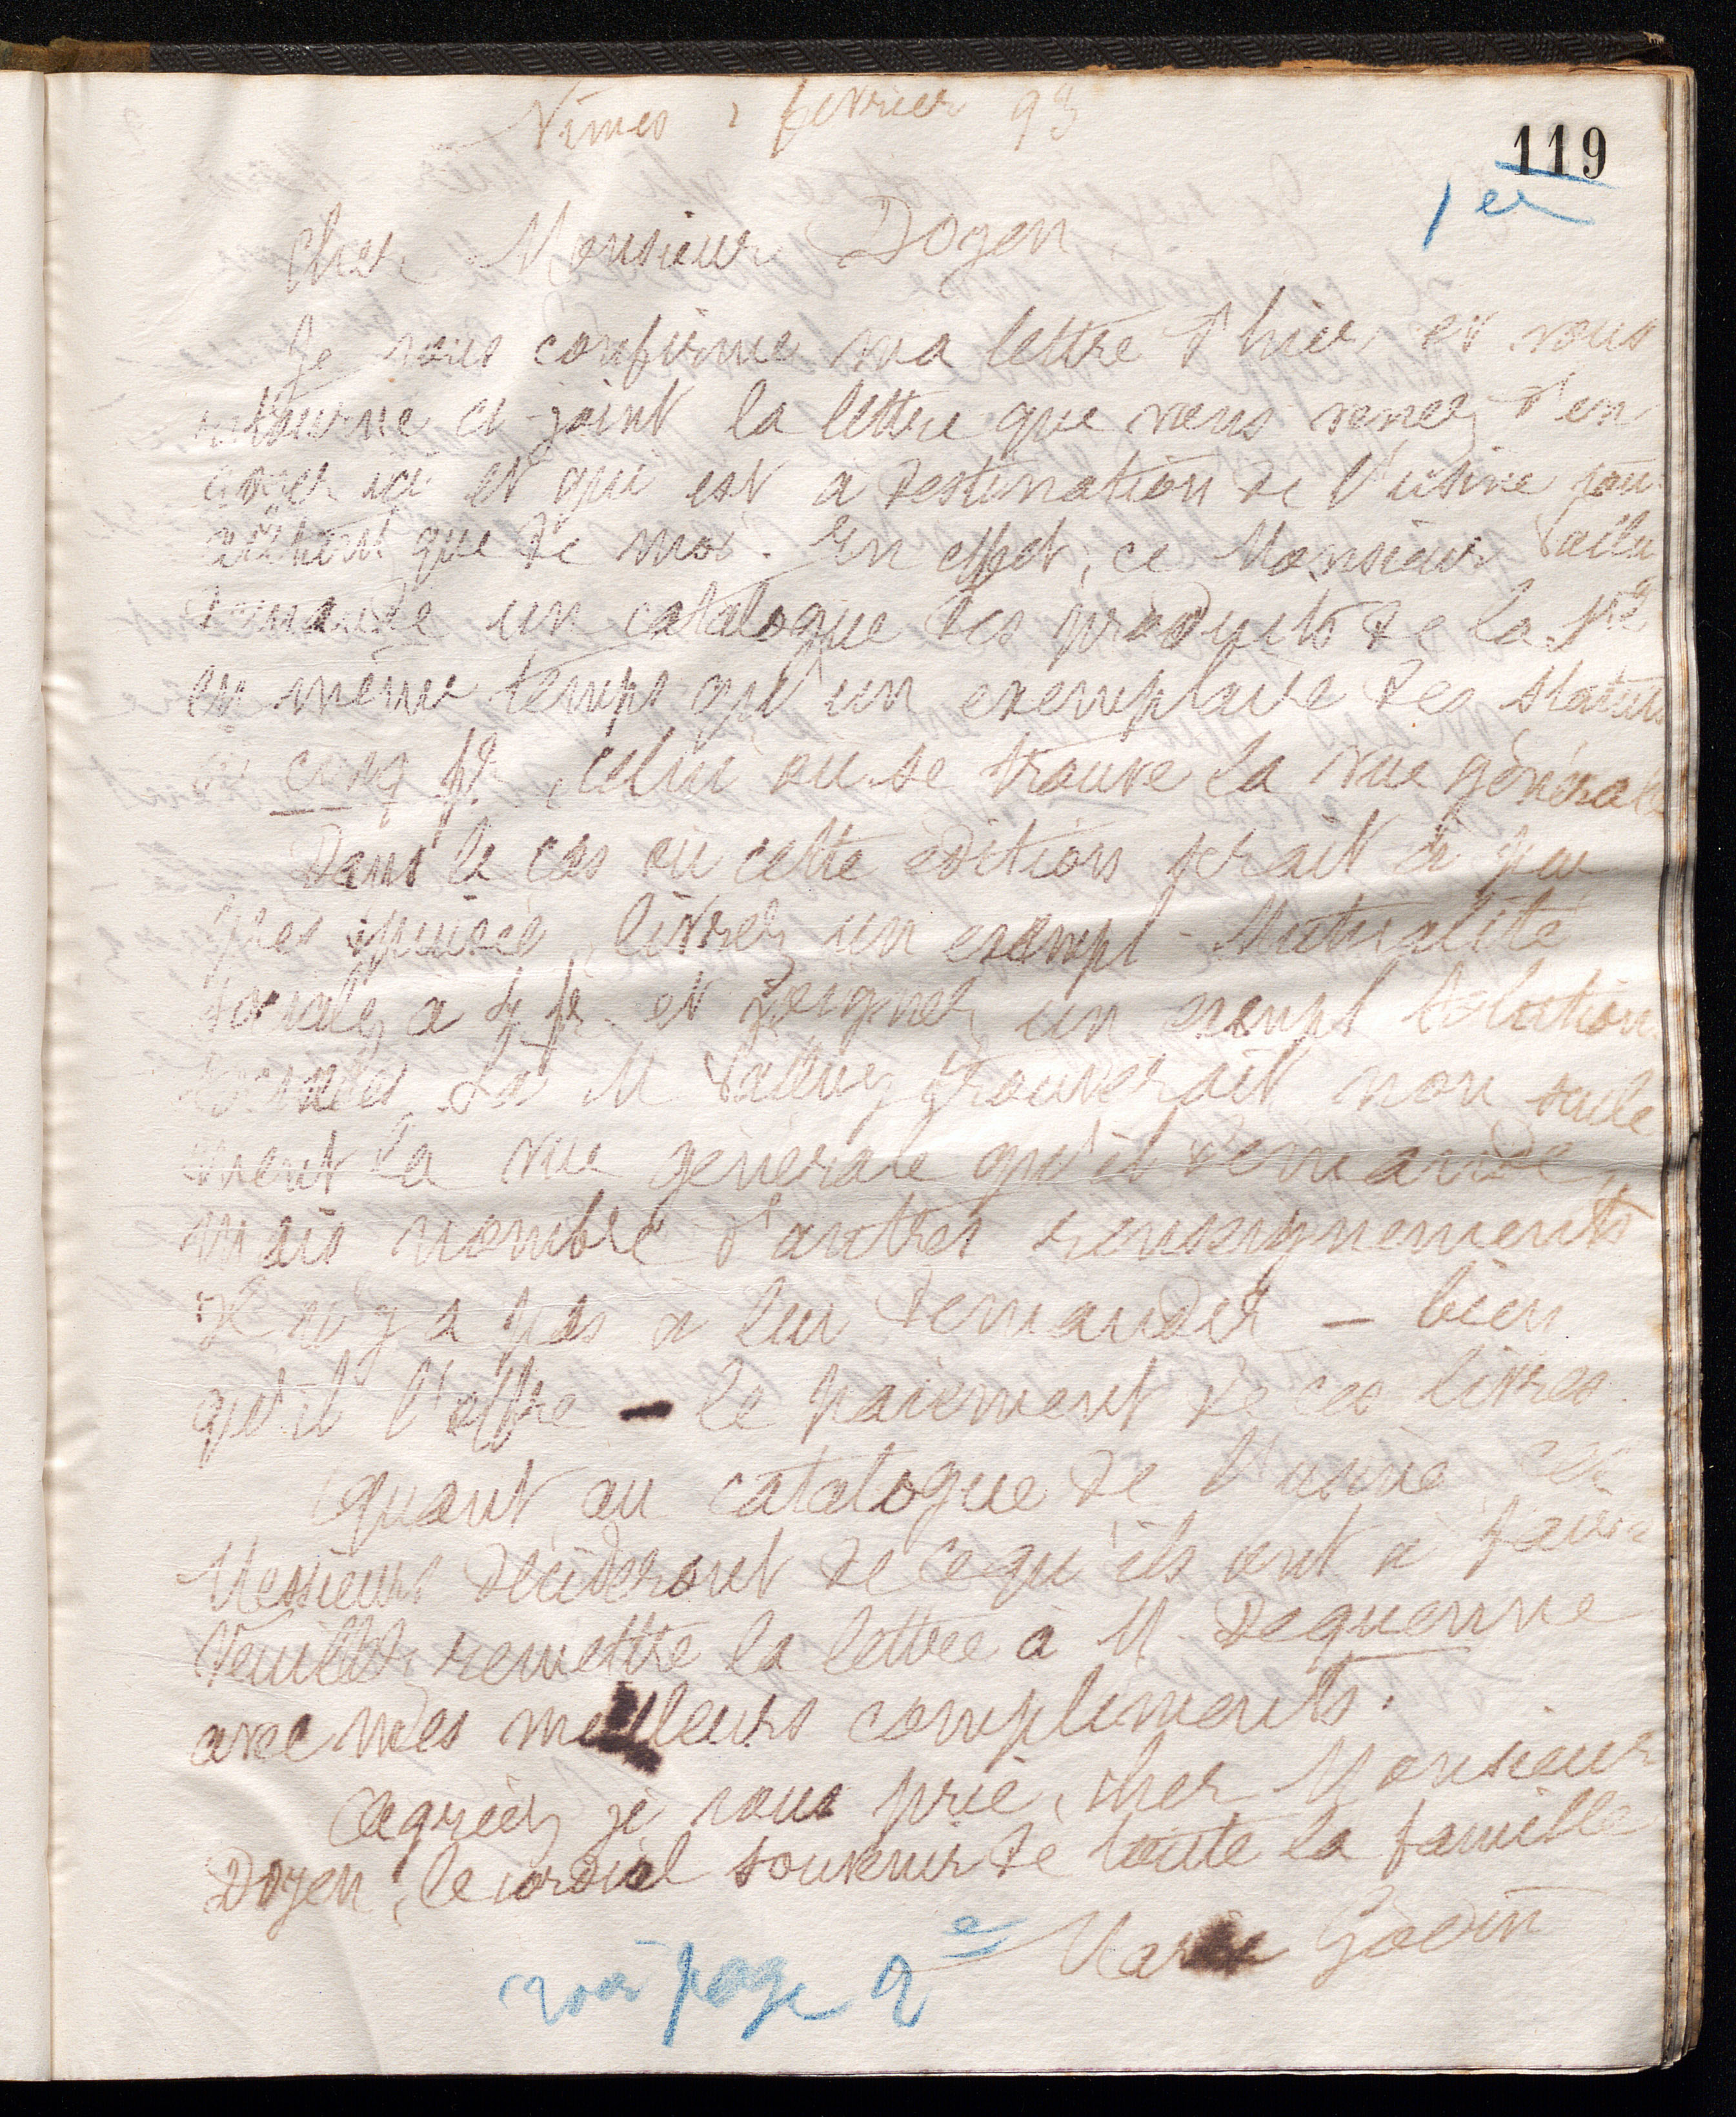 Nîmes 2 février 93
119
1er
Cher Monsieur Doyen
Je vous confirme ma lettre d'hier et vous
retourne ci-joint la lettre que vous venez d'en
voyer ici et qui est à destination de l'usine
autant que de moi. En effet, ce Monsieur
demande un catalogue des produits de la Sté
en même temps qu'un exemplaire des statuts
à cinq fr. celui où se trouve la vue générale
Dans le cas où cette édition serait à peu
près épuisée, livrez un exempl. Mutualité
sociale à 4 fr. et joignez un exempl Solutions
sociales. Là M trouverait non seule
ment la vue générale qu'il demande,
mais nombre d'autres renseignements
Il n'y a pas à lui demander – bien
qu'il l'offre – le paiement de ces livres.
Quant au catalogue de l'usine, ces
Messieurs décideront de ce qu'ils ont à faire
Veuillez remettre la lettre à M Dequenne
avec mes meilleurs compliments.
Agréez je vous prie, cher Monsieur
Doyen, le cordial souvenir de toute la famille
Marie Godin
voir page 2e